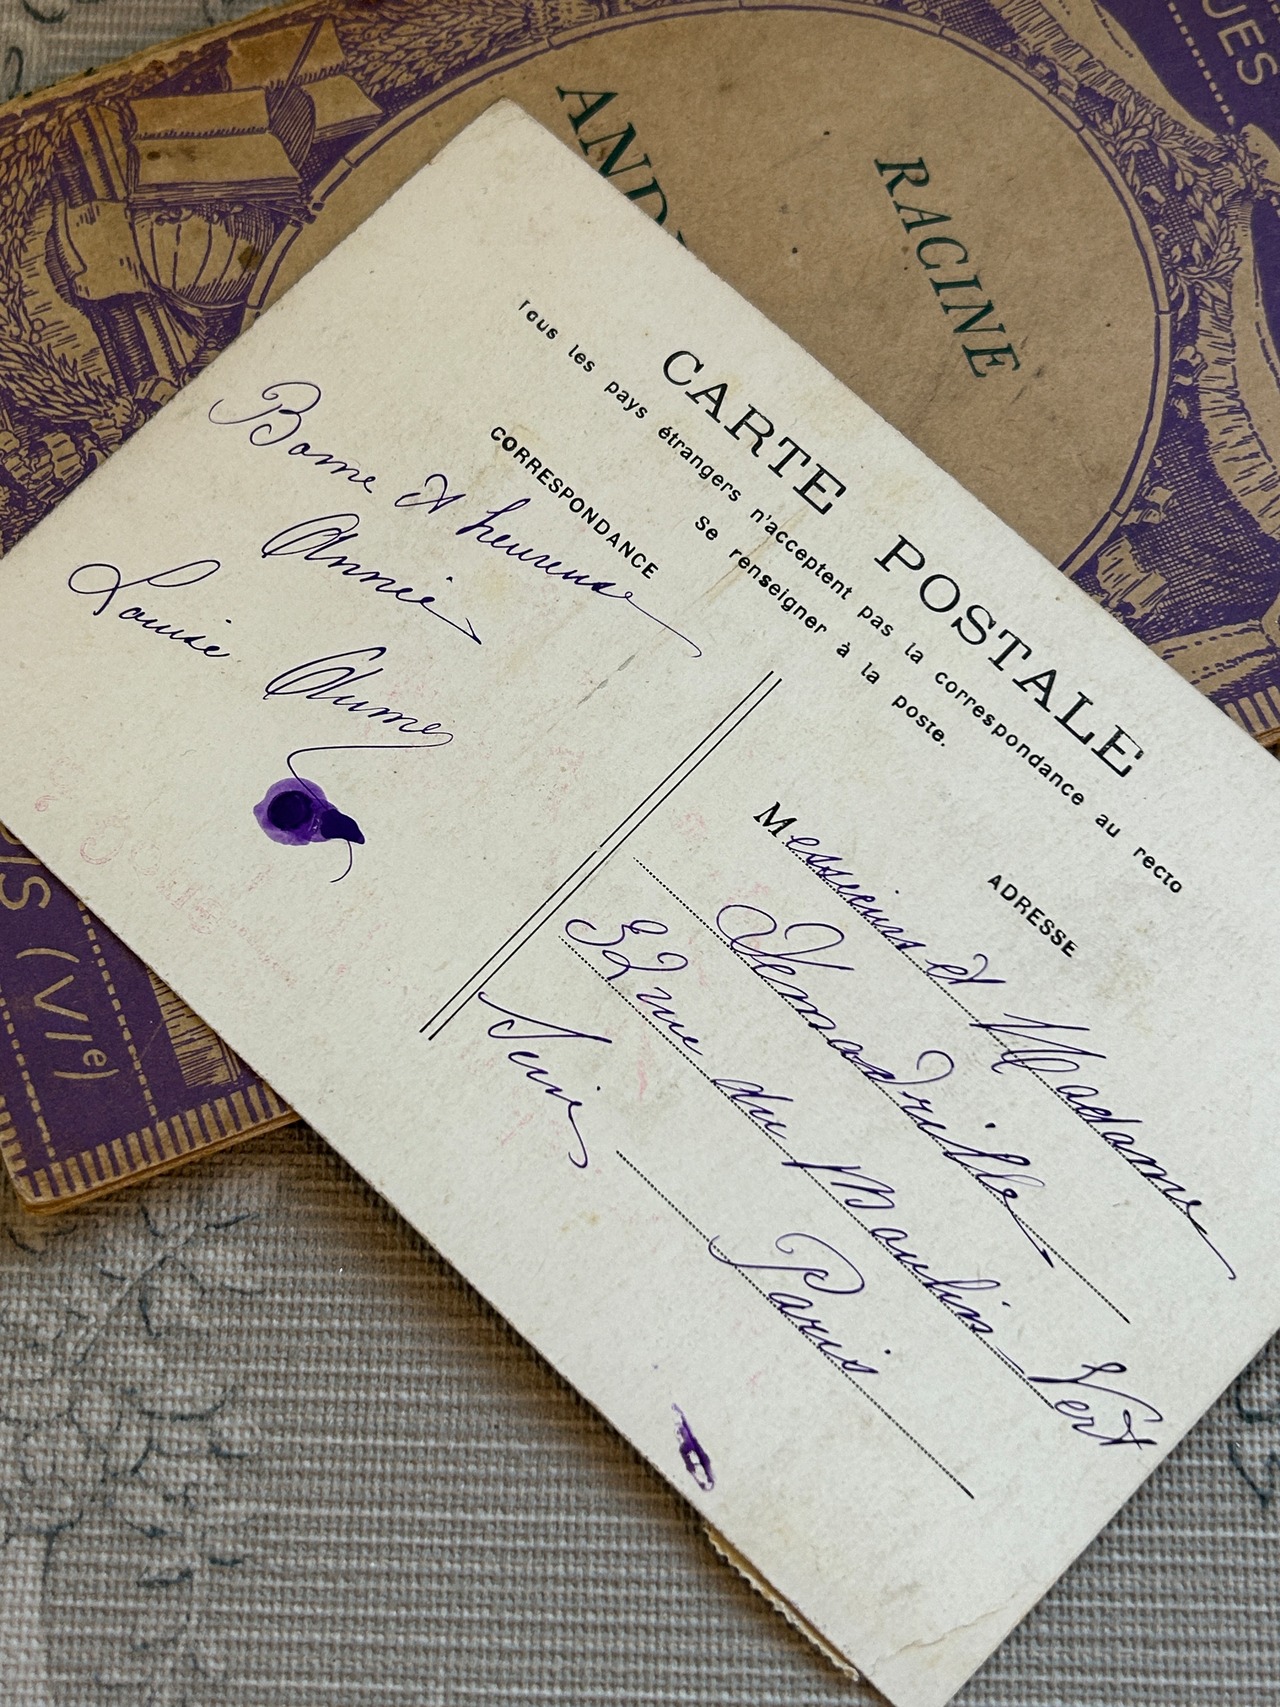 RACINE
AND
UES
CARTE POSTALE
Tous les pays étrangers n'acceptent pas la correspondance au recto
Se renseigner à la poste.
CORRESPONDANCE
Bonne et heureuse
Année
Louise Aumer
ADRESSE
Messieurs et Madame
Demadrille
32 rue du Moulin Vert
Paris
Seine
IS (VIe)